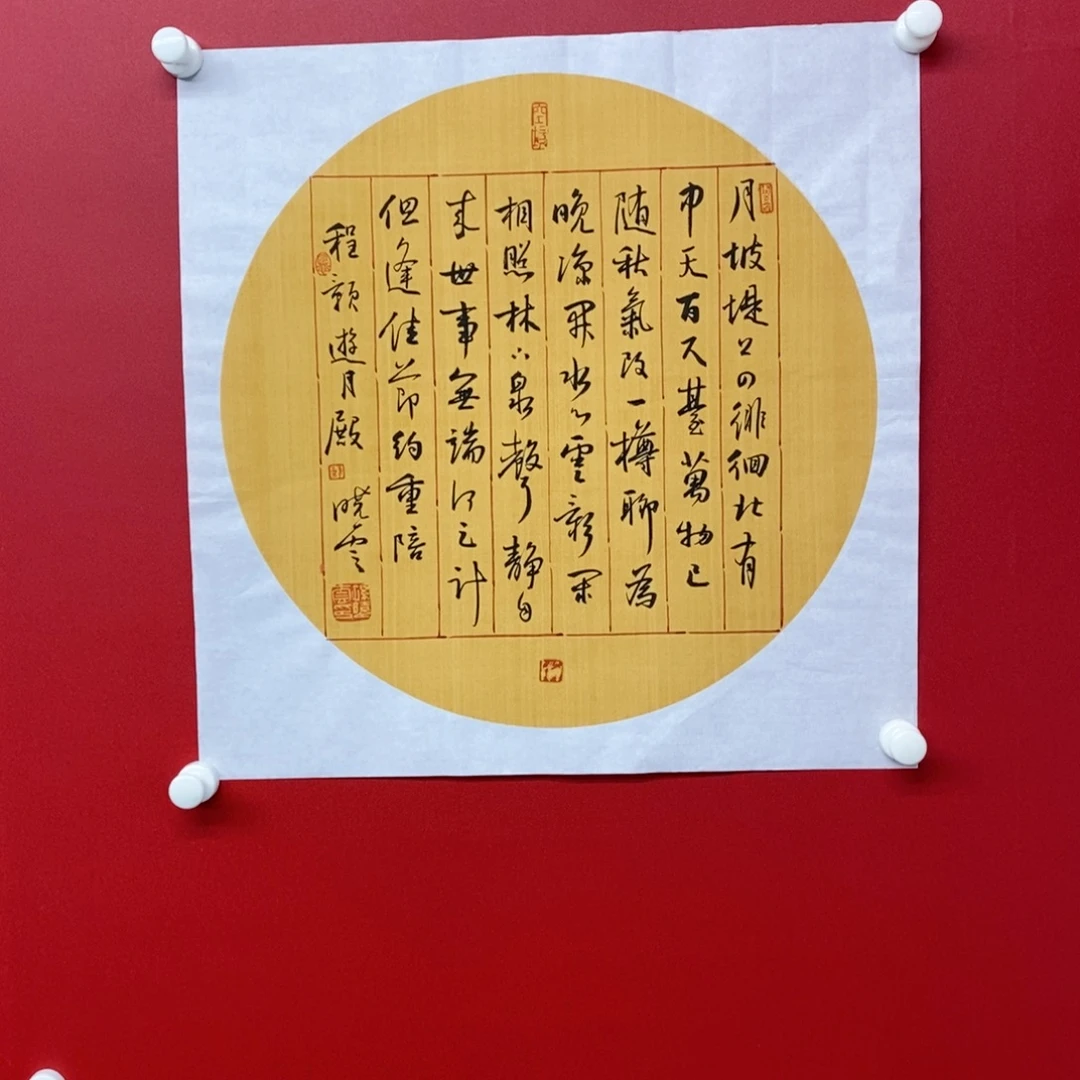 月坡堤上四徘徊北有
中天百尺臺萬物已
随秋氣改一樽聊為
晚凉開水心雲影閑
相照林下泉聲静自
来世事無端何足計
但逢佳節約重陪
程顥遊月殿 曉雲